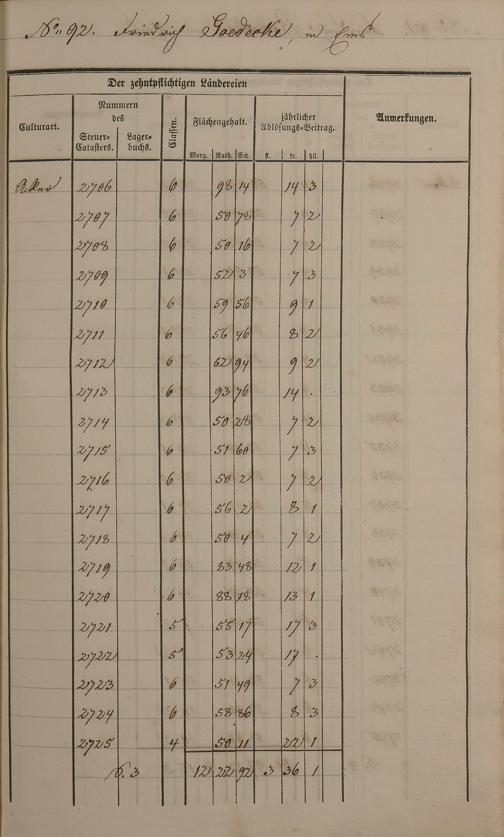 No. 92. Friedrich Goedecke, in Ems
Der zehntpflichtigen Ländereien
Culturart.
Nummern des
Steuer-Catasters.
Lager-buchs.
Classen.
Flächengehalt.
Morg. Ruth. Sch.
jährlicher Ablösungs-Beitrag.
fl. kr. hll.
Anmerkungen.
Acker 2706 6 98 14 14 3
2707 6 50 78 7 2
2708 6 50 16 7 2
2709 6 52 3 7 3
2710 6 59 56 9 1
2711 6 56 46 8 2
2712 6 62 94 9 2
2713 6 93 76 14 .
2714 6 50 28 7 2
2715 6 51 60 7 3
2716 6 50 2 7 2
2717 6 56 2 8 1
2718 6 50 4 7 2
2719 6 83 48 12 1
2720 6 88 18 13 1
2721 5 55 17 17 3
2722 5 53 24 17 .
2723 6 51 49 7 3
2724 6 58 86 8 3
2725 4 50 11 22 1
S. 3 12 22 92 3 36 1